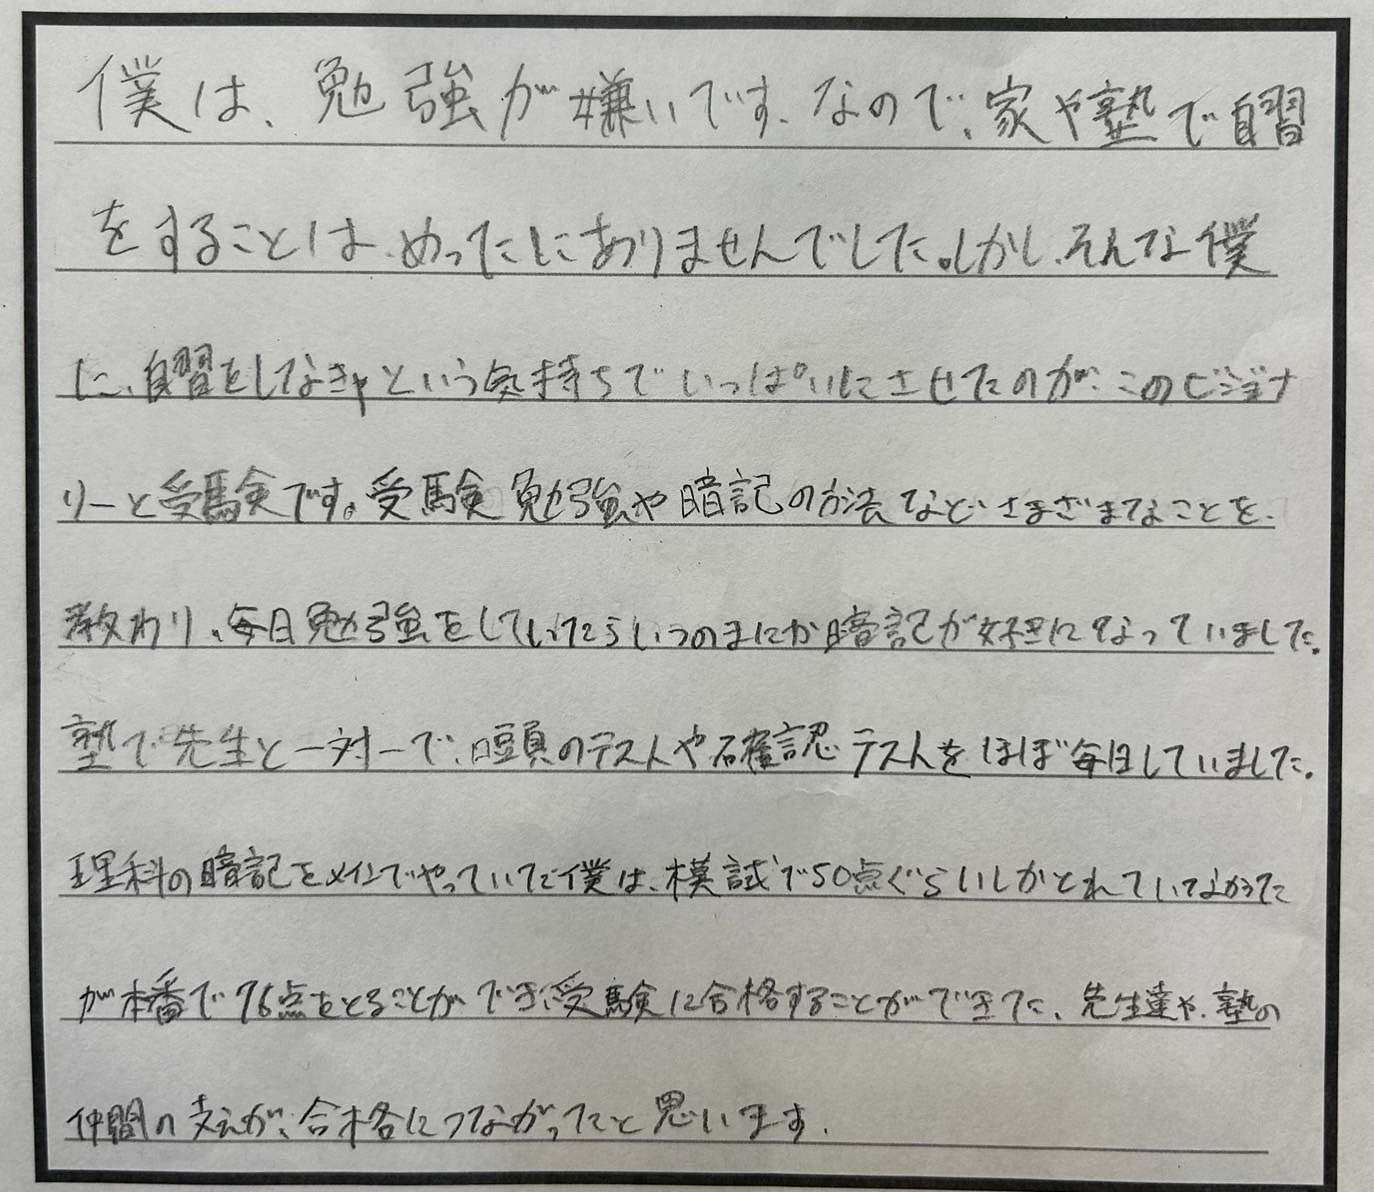 僕は、勉強が嫌いです。なので、家や塾で自習
をすることは、めったにありませんでした。しかし、そんな僕
に、自習をしなきゃという気持ちでいっぱいにさせたのが、このビジョナ
リーと受験です。受験勉強や暗記の方法など、さまざまなことを、
教わり、毎日勉強をしていたらいつのまにか暗記が好きになっていました。
塾で先生と一対一で、口頭のテストや確認テストをほぼ毎日していました。
理科の暗記をメインでやっていた僕は、模試で50点ぐらいしかとれていなかった
が本番で76点をとることができ、受験に合格することができた、先生達や、塾の
仲間の支えが、合格につながったと思います。